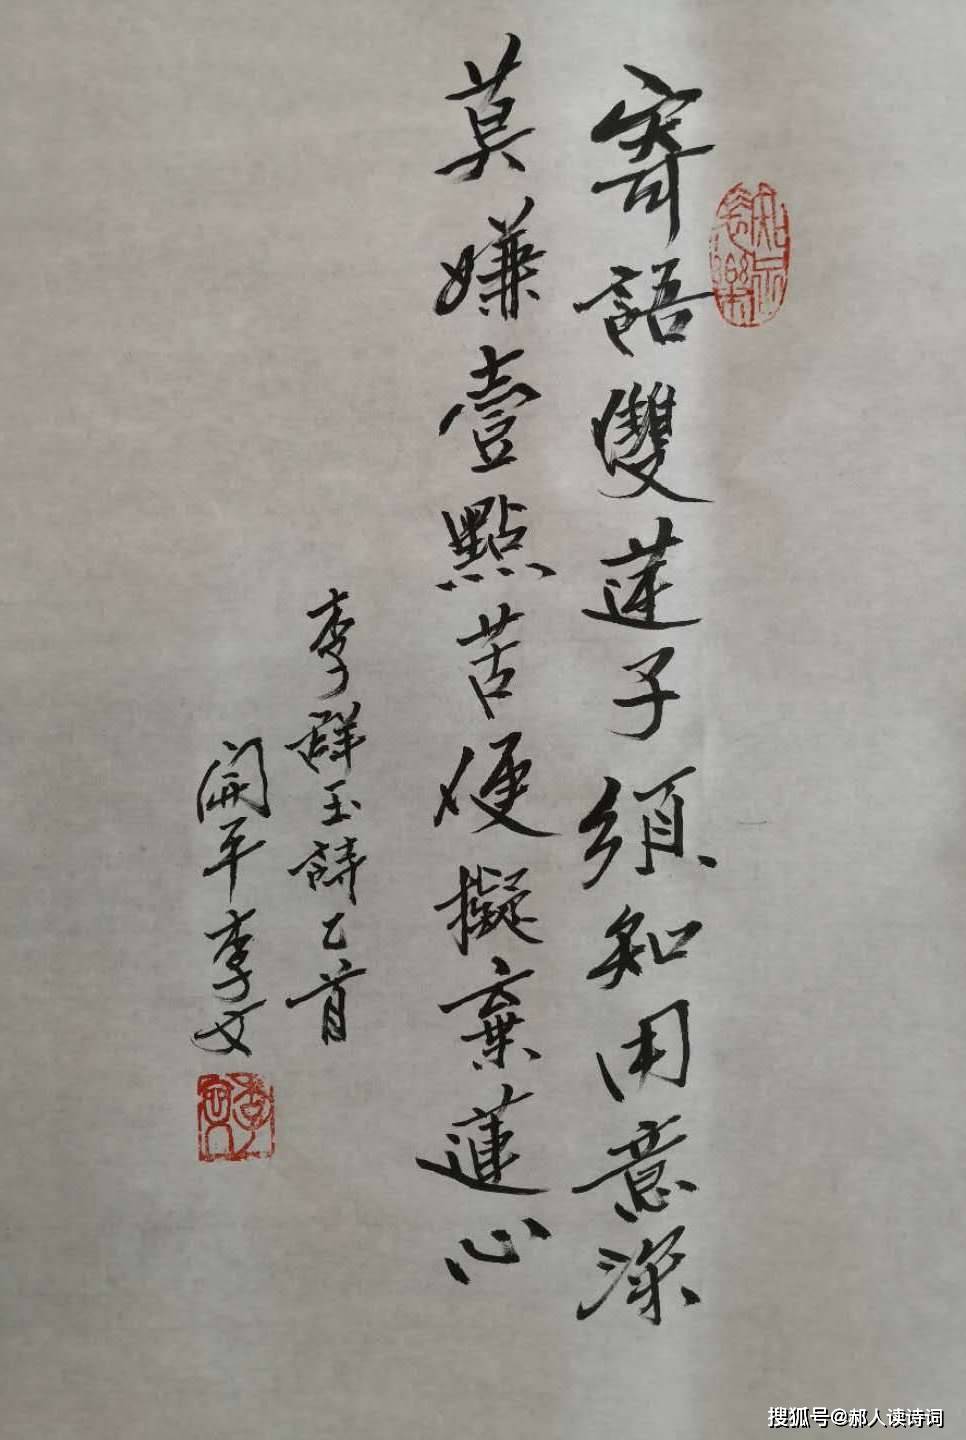 寄語雙蓮子須知用意深
莫嫌壹點苦便擬棄蓮心
李群玉詩乙首
開平李文
知足常樂
搜狐号@郝人读诗词